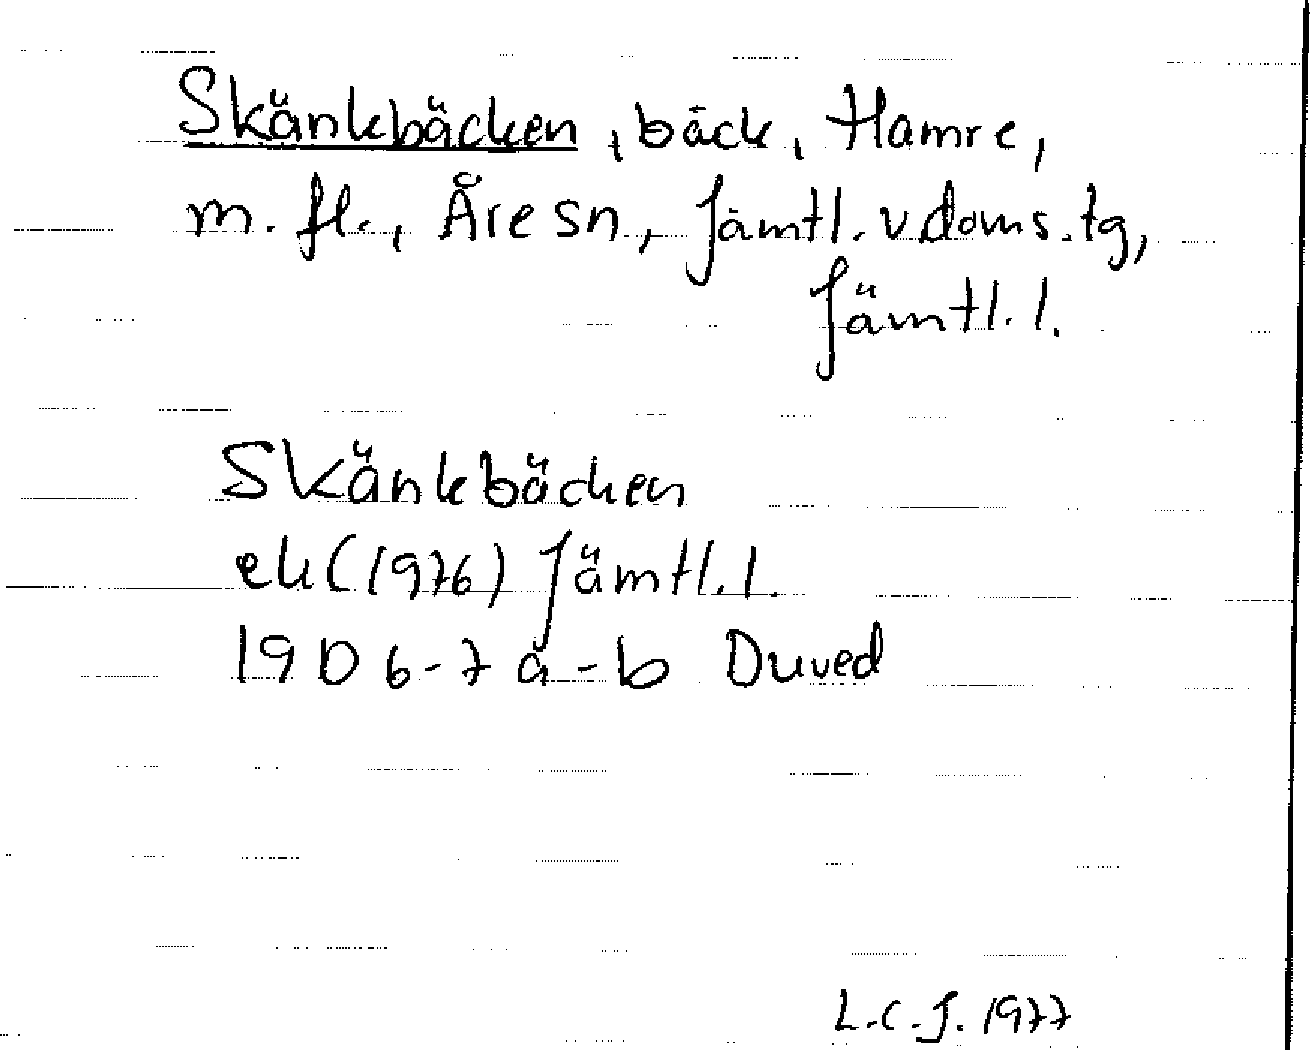 Skänkbäcken, bäck, Hamre,
m. fl., Åre sn, Jämtl. v. doms. tg,
Jämtl. l.
Skänkbäcken
ek (1976) Jämtl. l.
19 D 6-7 a-b Duved
L.C.J. 1977